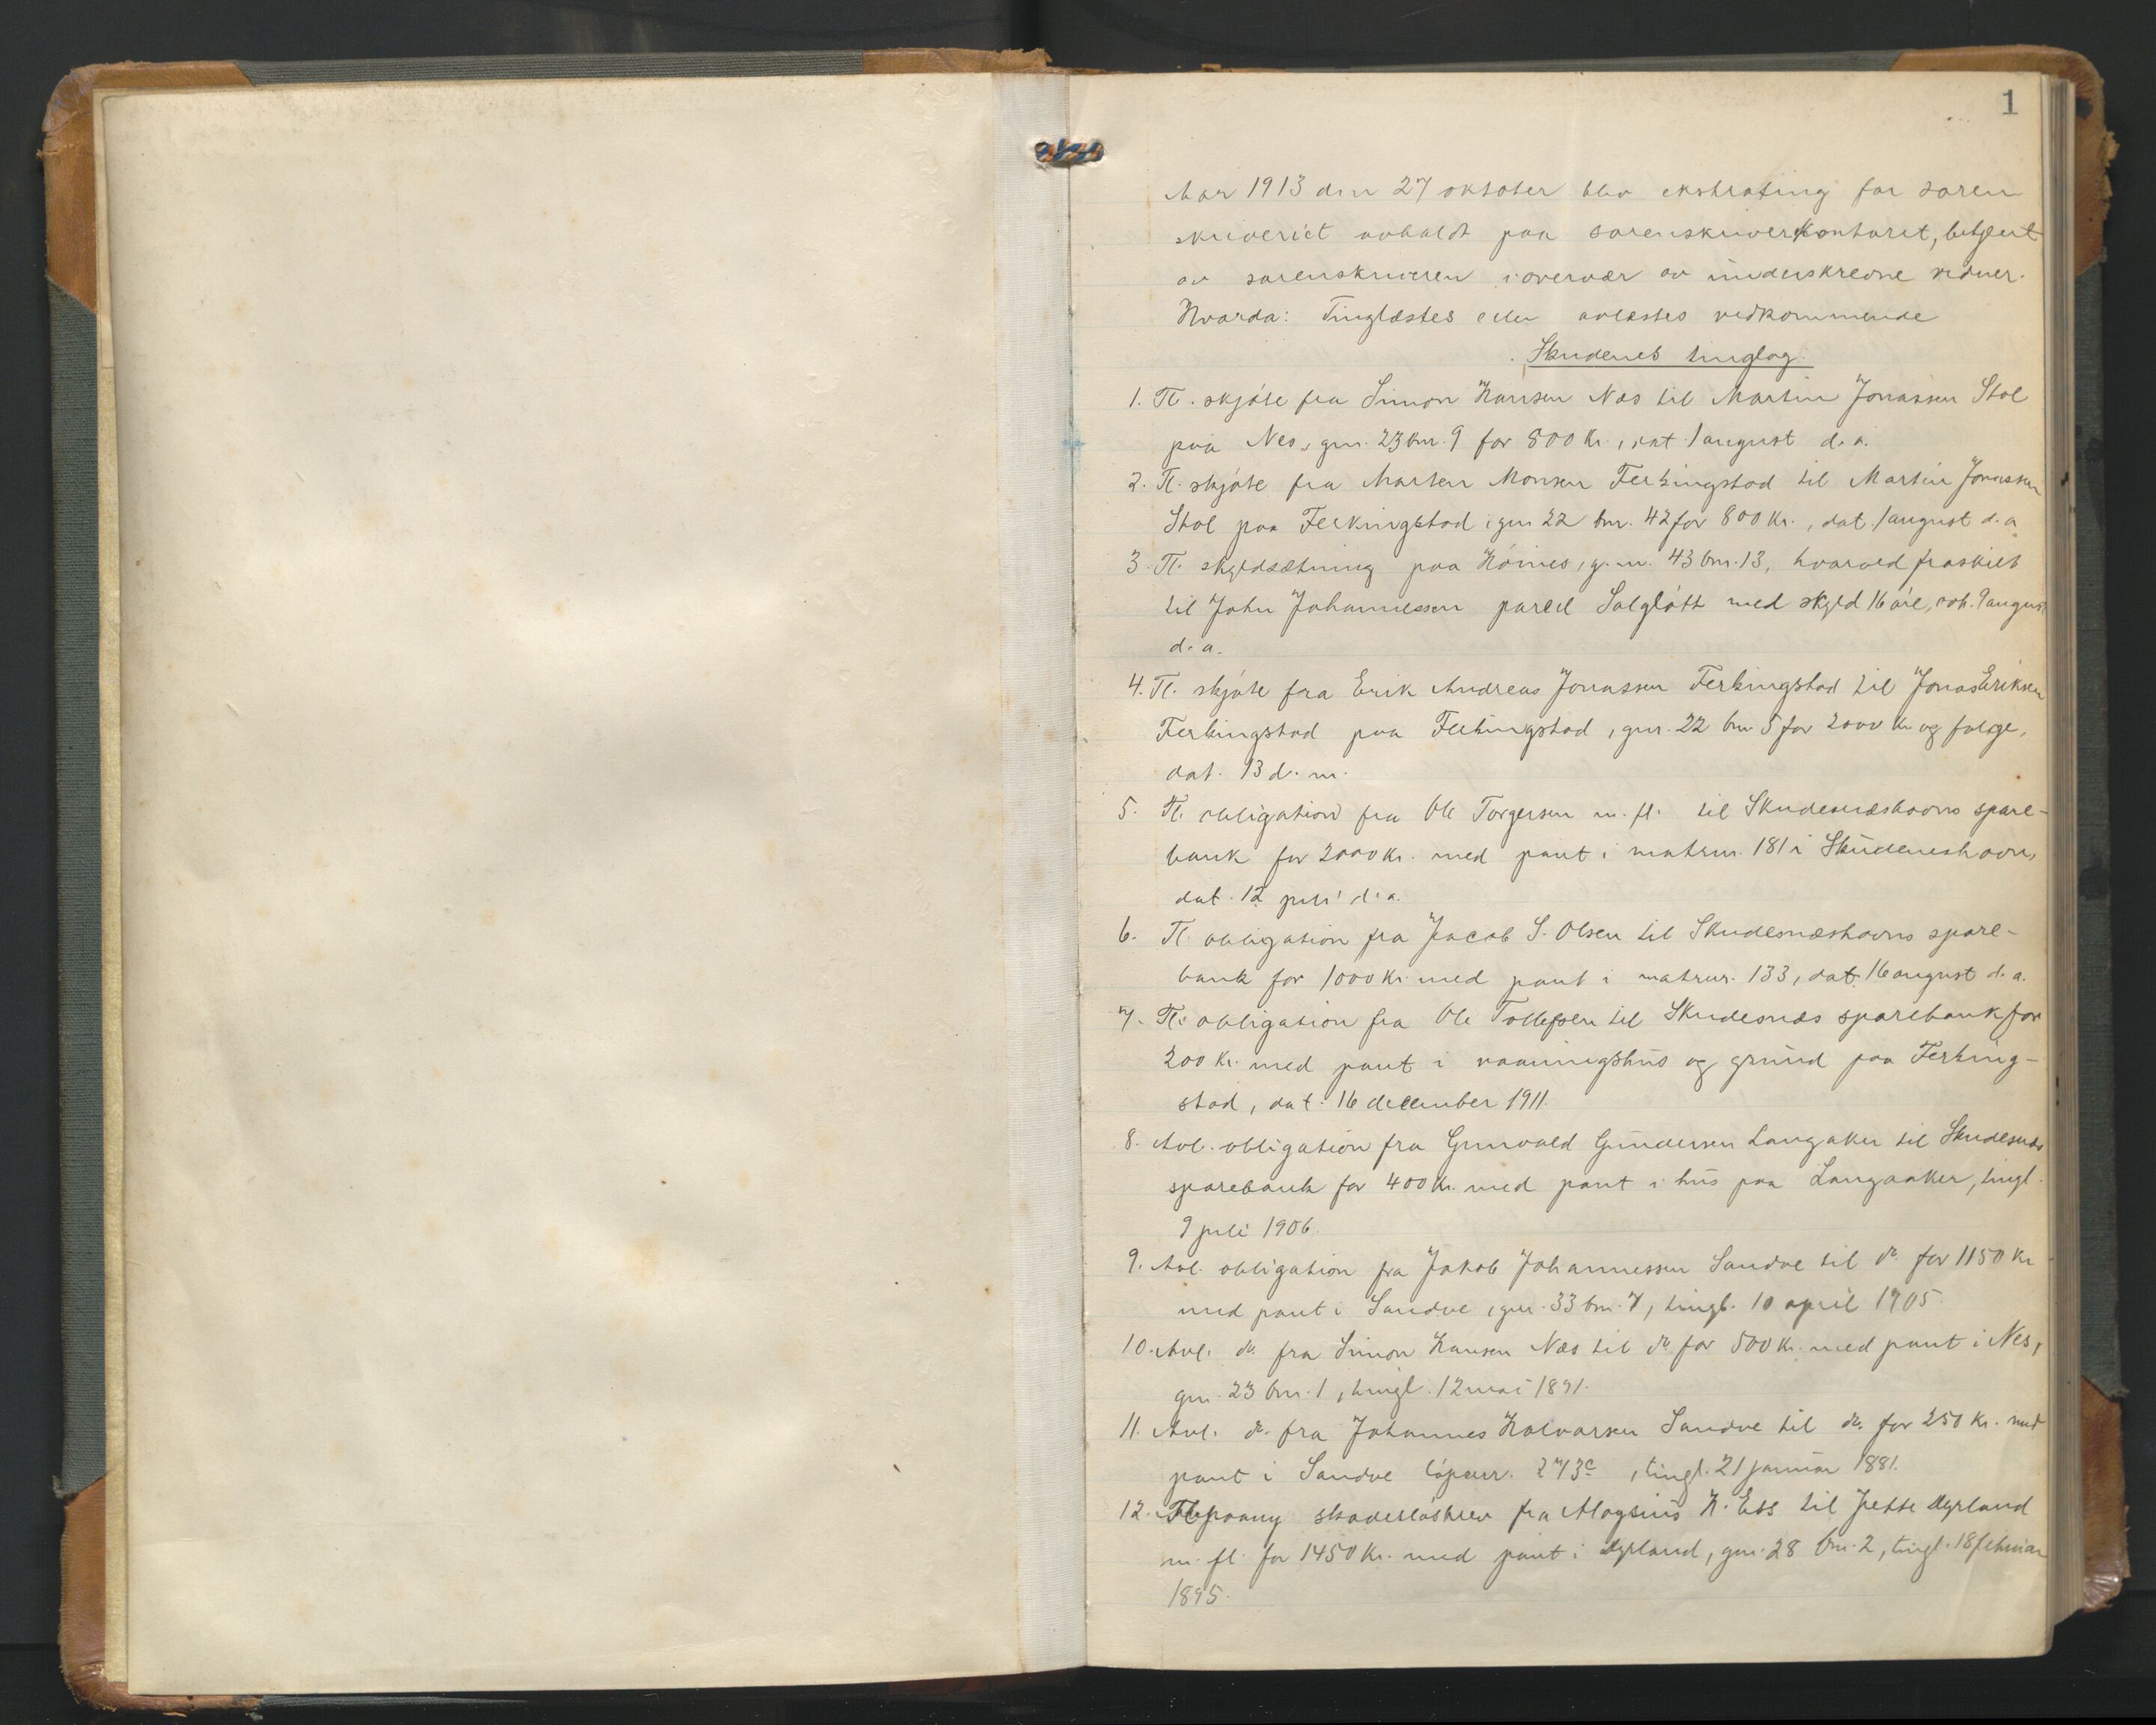 1
Aar 1913 den 27 oktober blev ekstrating for soren
skriveriet avholdt paa sorenskriverkontoret, betjent
av sorenskriveren i overvær av underskrevne vidner.
Hvorda: Tinglæstes eller avlæstes vedkommende
Skudenes tinglag.
1. Tl. skjøte fra Simon Hansen Næs til Martin Jonassen Stol
paa Nes, gnr. 23 bnr. 9 for 800 Kr., dat. 1 august d. a.
2. Tl. skjøte fra Marten Monsen Ferkingstad til Martin Jonassen
Stol paa Ferkingstad, gnr 22 bnr. 42 for 800 Kr., dat. 1 august d. a
3. Tl. skyldsætning paa Høines, g. nr. 43 bnr. 13, hvorved fraskilt
til John Johannessen parcel Solgløtt med skyld 16 øre, avh. 9 august
d. a.
4. Tl. skjøte fra Erik Andreas Jonassen Ferkingstad til Jonas Eriksen
Ferkingstad paa Ferkingstad, gnr. 22 bnr 5 for 2000 Kr og følge,
dat. 13 d. m.
5. Tl. obligation fra Ole Torgersen m. fl. til Skudesnæshavns spare-
bank for 2000 Kr. med pant i matrnr. 181 i Skudeneshavn,
dat. 12 juli d. a.
6. Tl obligation fra Jacob S. Olsen til Skudesnæshavns spare-
bank for 1000 Kr. med pant i matrnr. 133, dat. 16 august d. a.
7. Tl. obligation fra Ole Tollefsen til Skudesnæs sparebank for
200 Kr. med pant i vaaningshus og grund paa Ferking-
stad, dat. 16 december 1911.
8. Avl. obligation fra Grunvald Gundersen Langaker til Skudesnæs
sparebank for 400 Kr. med pant i hus paa Langaaker, tingl.
9 juli 1906.
9. Avl. obligation fra Jakob Johannessen Sandve til do. for 1150 Kr
med pant i Sandve, gnr. 33 bnr. 7, tingl. 10 april 1905.
10. Avl. do. fra Simon Hansen Næs til do. for 500 Kr. med pant i Nes,
gnr. 23 bnr. 1, tingl. 12 mai 1891.
11. Avl. do. fra Johannes Halvorsen Sandve til do. for 250 Kr. med
pant i Sandve løpenr. 273c, tingl. 21 januar 1881.
12. skadesløsbrev fra Aloysius H. Ebs til Jette Dyrland
m. fl. for 1450 Kr. med pant i Dyrland, gnr. 28 bnr. 2, tingl. 18 februar
1895.